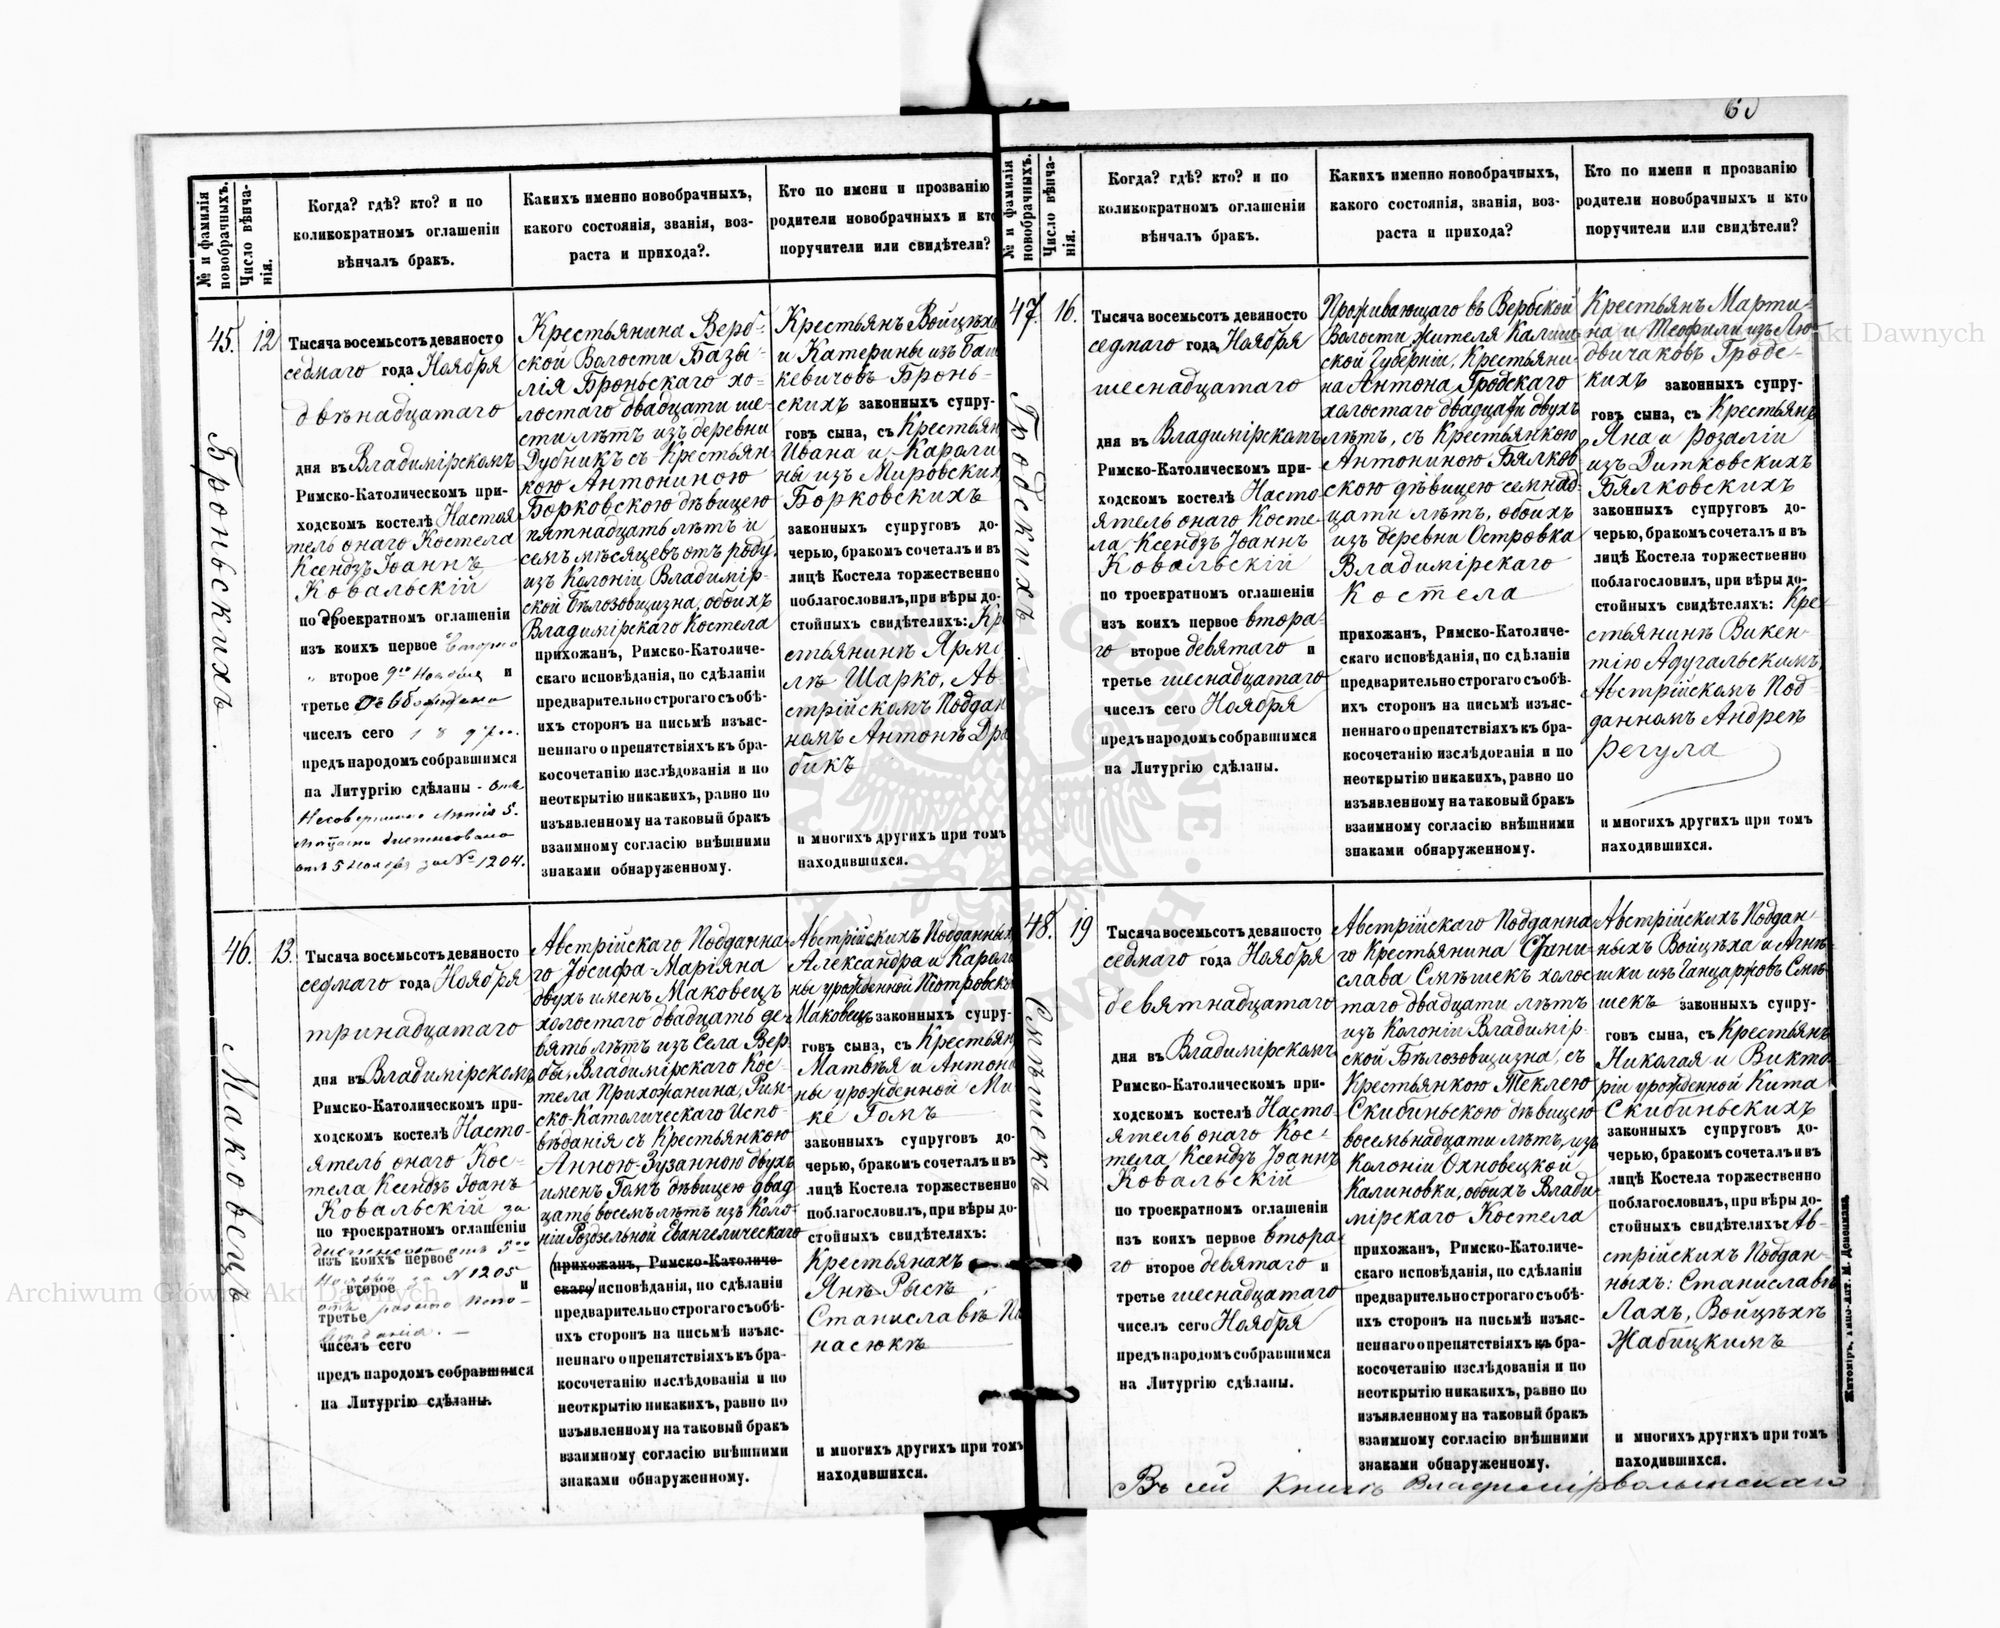 60
№ и фамилія новобрачныхъ.
Число вѣнчанія.
Когда? гдѣ? кто? и по
коликократномъ оглашеніи
вѣнчалъ бракъ.
Какихъ именно новобрачныхъ,
какого состоянія, званія, воз-
раста и прихода?.
Кто по имени и прозванію
родители новобрачныхъ и кто
поручители или свидѣтели?
45.
Броньскихъ.
12
Тысяча восемьсотъ девяносто
седмаго года Ноября
двѣнадцатаго
дня въ Владимірскомъ
Римско-Католическомъ при-
ходскомъ костелѣ Настоя
тель онаго Костела
Ксендзъ Іоаннъ
Ковальскій
по троекратномъ оглашеніи
изъ коихъ первое Втораго
" второе 9го Ноября и
третье
чиселъ сего 1897 г.
предъ народомъ собравшимся
на Литургію сдѣланы - отъ
5.
отъ 5 Ноября за № 1204.
Крестьянина Верб-
ской Волости Базы-
лія Броньскаго хо-
лостаго двадцати ше-
сти лѣтъ изъ деревни
Дубникъ съ Крестьян-
кою Антониною
Борковскою дѣвицею
пятнадцать лѣтъ и
семь мѣсяцевъ отъ роду,
изъ Колоніи Владимір-
ской Бѣлозовщизна, обоихъ
Владимірскаго Костела
прихожанъ, Римско-Католиче-
скаго исповѣданія, по сдѣланіи
предварительно строгаго съ обѣ-
ихъ сторонъ на письмѣ изъяс-
неннаго о препятствіяхъ къ бра-
косочетанію изслѣдованія и по
неоткрытію никакихъ, равно по
изъявленному на таковый бракъ
взаимному согласію внѣшними
знаками обнаруженному.
Крестьянъ Войцѣха
и Катерины изъ Бац
кевичовъ Бронь-
скихъ законныхъ супру-
говъ сына, съ Крестьян
Ивана и Кароли
ны изъ Мировскихъ
Борковскихъ
законныхъ супруговъ до-
черью, бракомъ сочеталъ и въ
лицѣ Костела торжественно
поблагословилъ, при вѣры до-
стойныхъ свидѣтеляхъ: Кр
стьянинѣ Ярмо
лѣ Шарко, Ав-
стрійскомъ Поддан
номъ Антонѣ Дра
бикъ
и многихъ другихъ при томъ
находившихся.
46.
Маковецъ.
13.
Тысяча восемьсотъ девяносто
седмаго года Ноября
тринадцатаго
дня въ Владимірскомъ
Римско-Католическомъ при-
ходскомъ костелѣ Насто-
ятель онаго Кос-
тела Ксендзъ Іоанъ
Ковальскій за
по троекратномъ оглашеніи
диспенсою отъ 5го
изъ коихъ первое
Ноября за № 1205
второе и
третье
чиселъ сего
предъ народомъ собравшимся
на Литургію сдѣланы.
Австрійскаго Подданна-
го Іосифа-Маріяна
двухъ именъ Маковецъ
холостаго двадцать де-
вять лѣтъ изъ Села Вер-
бы, Владимірскаго Кос-
тела Прихожанина, Рим-
ско-Католическаго Испо-
вѣданія съ Крестьянкою
Анною-Зузанною двухъ
именъ Гомъ дѣвицею двад
цать восемь лѣтъ изъ Коло-
ніи Роздзельной Евангелическаго
(прихожанъ, Римско-Католиче-
скаго) исповѣданія, по сдѣланіи
предварительно строгаго съ обѣ-
ихъ сторонъ на письмѣ изъяс-
неннаго о препятствіяхъ къ бра-
косочетанію изслѣдованія и по
неоткрытію никакихъ, равно по
изъявленному на таковый бракъ
взаимному согласію внѣшними
знаками обнаруженному.
Австрійскихъ Подданныхъ
Александра и Кароли
ны урожденной Піотровской
Маковецъ законныхъ супру-
говъ сына, съ Крестьян
Матвѣя и Антони
ны урожденной Ми
ке Гомъ
законныхъ супруговъ до-
черью, бракомъ сочеталъ и въ
лицѣ Костела торжественно
поблагословилъ, при вѣры до-
стойныхъ свидѣтеляхъ:
Крестьянахъ
Янѣ Рысь,
Станиславѣ Па
насюкѣ
и многихъ другихъ при томъ
находившихся.
№ и фамилія новобрачныхъ.
Число вѣнчанія.
Когда? гдѣ? кто? и по
коликократномъ оглашеніи
вѣнчалъ бракъ.
Какихъ именно новобрачныхъ,
какого состоянія, званія, воз-
раста и прихода?
Кто по имени и прозванію
родители новобрачныхъ и кто
поручители или свидѣтели?
47.
Гродскихъ.
16.
Тысяча восемьсотъ девяносто
седмаго года Ноября
шеснадцатаго
дня въ Владимірскомъ
Римско-Католическомъ при-
ходскомъ костелѣ Насто
ятель онаго Косте-
ла Ксендзъ Іоаннъ
Ковальскій
по троекратномъ оглашеніи
изъ коихъ первое втора-
го второе девятаго и
третье шеснадцатаго
чиселъ сего Ноября
предъ народомъ собравшимся
на Литургію сдѣланы.
Проживающаго въ Вербской
Волости жителя Калиш
ской Губерніи, Крестьяни-
на Антона Гродскаго
холостаго двадцати двухъ
лѣтъ, съ Крестьянкою
Антониною Бялков
скою дѣвицею семнад-
цати лѣтъ, обоихъ
изъ деревни Островка
Владимірскаго
Костела
прихожанъ, Римско-Католиче-
скаго исповѣданія, по сдѣланіи
предварительно строгаго съ обѣ-
ихъ сторонъ на письмѣ изъяс-
неннаго о препятствіяхъ къ бра-
косочетанію изслѣдованія и по
неоткрытію никакихъ, равно по
изъявленному на таковый бракъ
взаимному согласію внѣшними
знаками обнаруженному.
Крестьянъ Марти-
на и Теофили изъ Лю-
двичаковъ Гродс-
кихъ законныхъ супру-
говъ сына, съ Крестьянъ
Яна и Розаліи
изъ Дитковскихъ
Бялковскихъ
законныхъ супруговъ до-
черью, бракомъ сочеталъ и въ
лицѣ Костела торжественно
поблагословилъ, при вѣры до-
стойныхъ свидѣтеляхъ: Кре
стьянинѣ Викен-
тію Адугальскимъ,
Австрійскомъ Под-
данномъ Андреѣ
Регула
и многихъ другихъ при томъ
находившихся.
48.
Смѣшекъ
19
Тысяча восемьсотъ девяносто
седмаго года Ноября
девятнадцатаго
дня въ Владимірскомъ
Римско-Католическомъ при-
ходскомъ костелѣ Насто-
ятель онаго Кос-
тела Ксендзъ Іоаннъ
Ковальскій
по троекратномъ оглашеніи
изъ коихъ первое втора
го второе девятаго и
третье шеснадцатаго
чиселъ сего Ноября
предъ народомъ собравшимся
на Литургію сдѣланы.
Австрійскаго Подданна-
го Крестьянина Стани-
слава Смѣшекъ холос
таго двадцати лѣтъ
изъ Колоніи Владимір-
ской Бѣлозовщизна, съ
Крестьянкою Теклею
Скибиньскою дѣвицею
восемьнадцати лѣтъ, изъ
Колоніи Охновецкой
Калиновки, обоихъ Влади-
мірскаго Костела
прихожанъ, Римско-Католиче-
скаго исповѣданія, по сдѣланіи
предварительно строгаго съ обѣ-
ихъ сторонъ на письмѣ изъяс-
неннаго о препятствіяхъ къ бра-
косочетанію изслѣдованія и по
неоткрытію никакихъ, равно по
изъявленному на таковый бракъ
взаимному согласію внѣшними
знаками обнаруженному.
Австрійскихъ Поддан-
ныхъ Войцѣха и Агнѣ-
шки изъ Ганцаржовъ Смѣ-
шекъ законныхъ супру-
говъ сына, съ Крестьянъ
Николая и Викто
ріи урожденной Кита
Скибиньскихъ
законныхъ супруговъ до-
черью, бракомъ сочеталъ и въ
лицѣ Костела торжественно
поблагословилъ, при вѣры до-
стойныхъ свидѣтеляхъ: Ав-
стрійскихъ Поддан-
ныхъ: Станиславѣ
Лахъ, Войцѣхѣ
Жабицкимъ
и многихъ другихъ при томъ
находившихся.
Въ сей Книгѣ Владимірволынскаго
Житоміръ, Типо-Лит. М. Дененмана.
Archiwum Główne Akt Dawnych
Archiwum Główne Akt Dawnych
ARCHIWUM GŁÓWNE AKT DAWNYCH